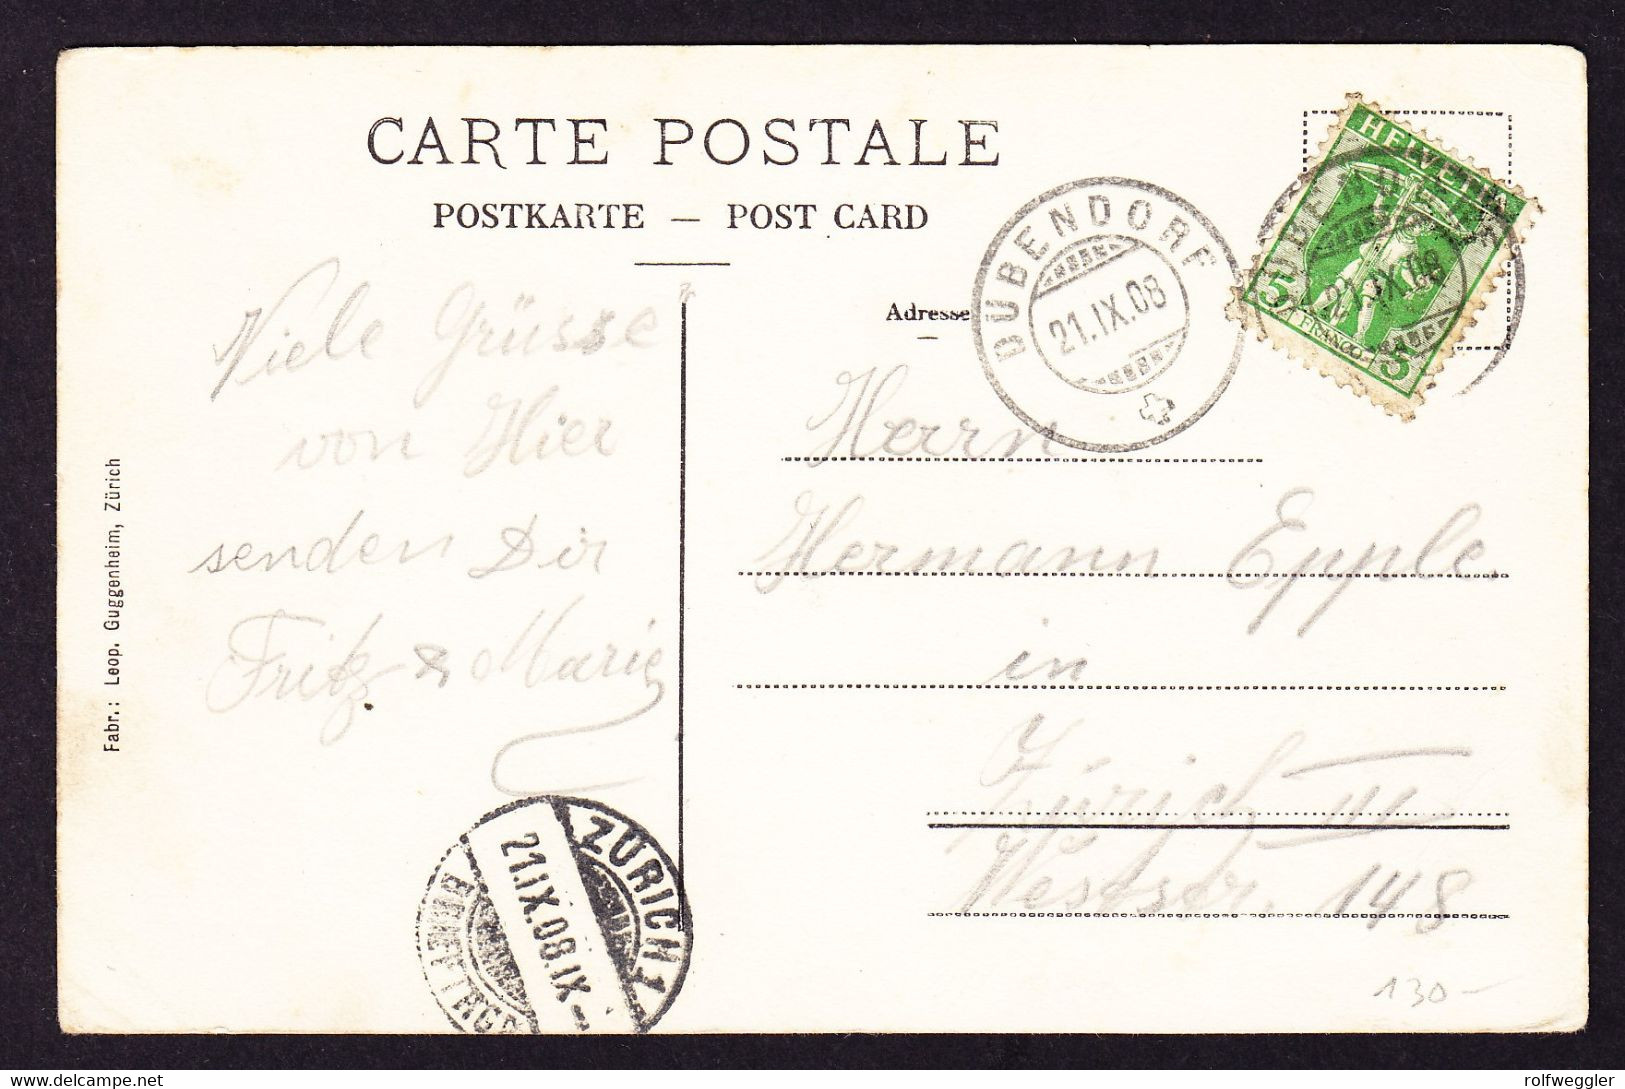 CARTE POSTALE
POSTKARTE — POST CARD
Adresse
DÜBENDORF
21.IX.08
HELVETIA
5 FRANCO 5
DÜBENDORF
21.IX.08
Viele Grüsse
von Hier
senden Dir
Fritz & Marie
Herrn
Hermann Epple
in
Zürich III
Weststr. 148
130-
Fabr.: Leop. Guggenheim, Zürich
ZÜRICH 1
21.IX.08.IX-
rolfweggler